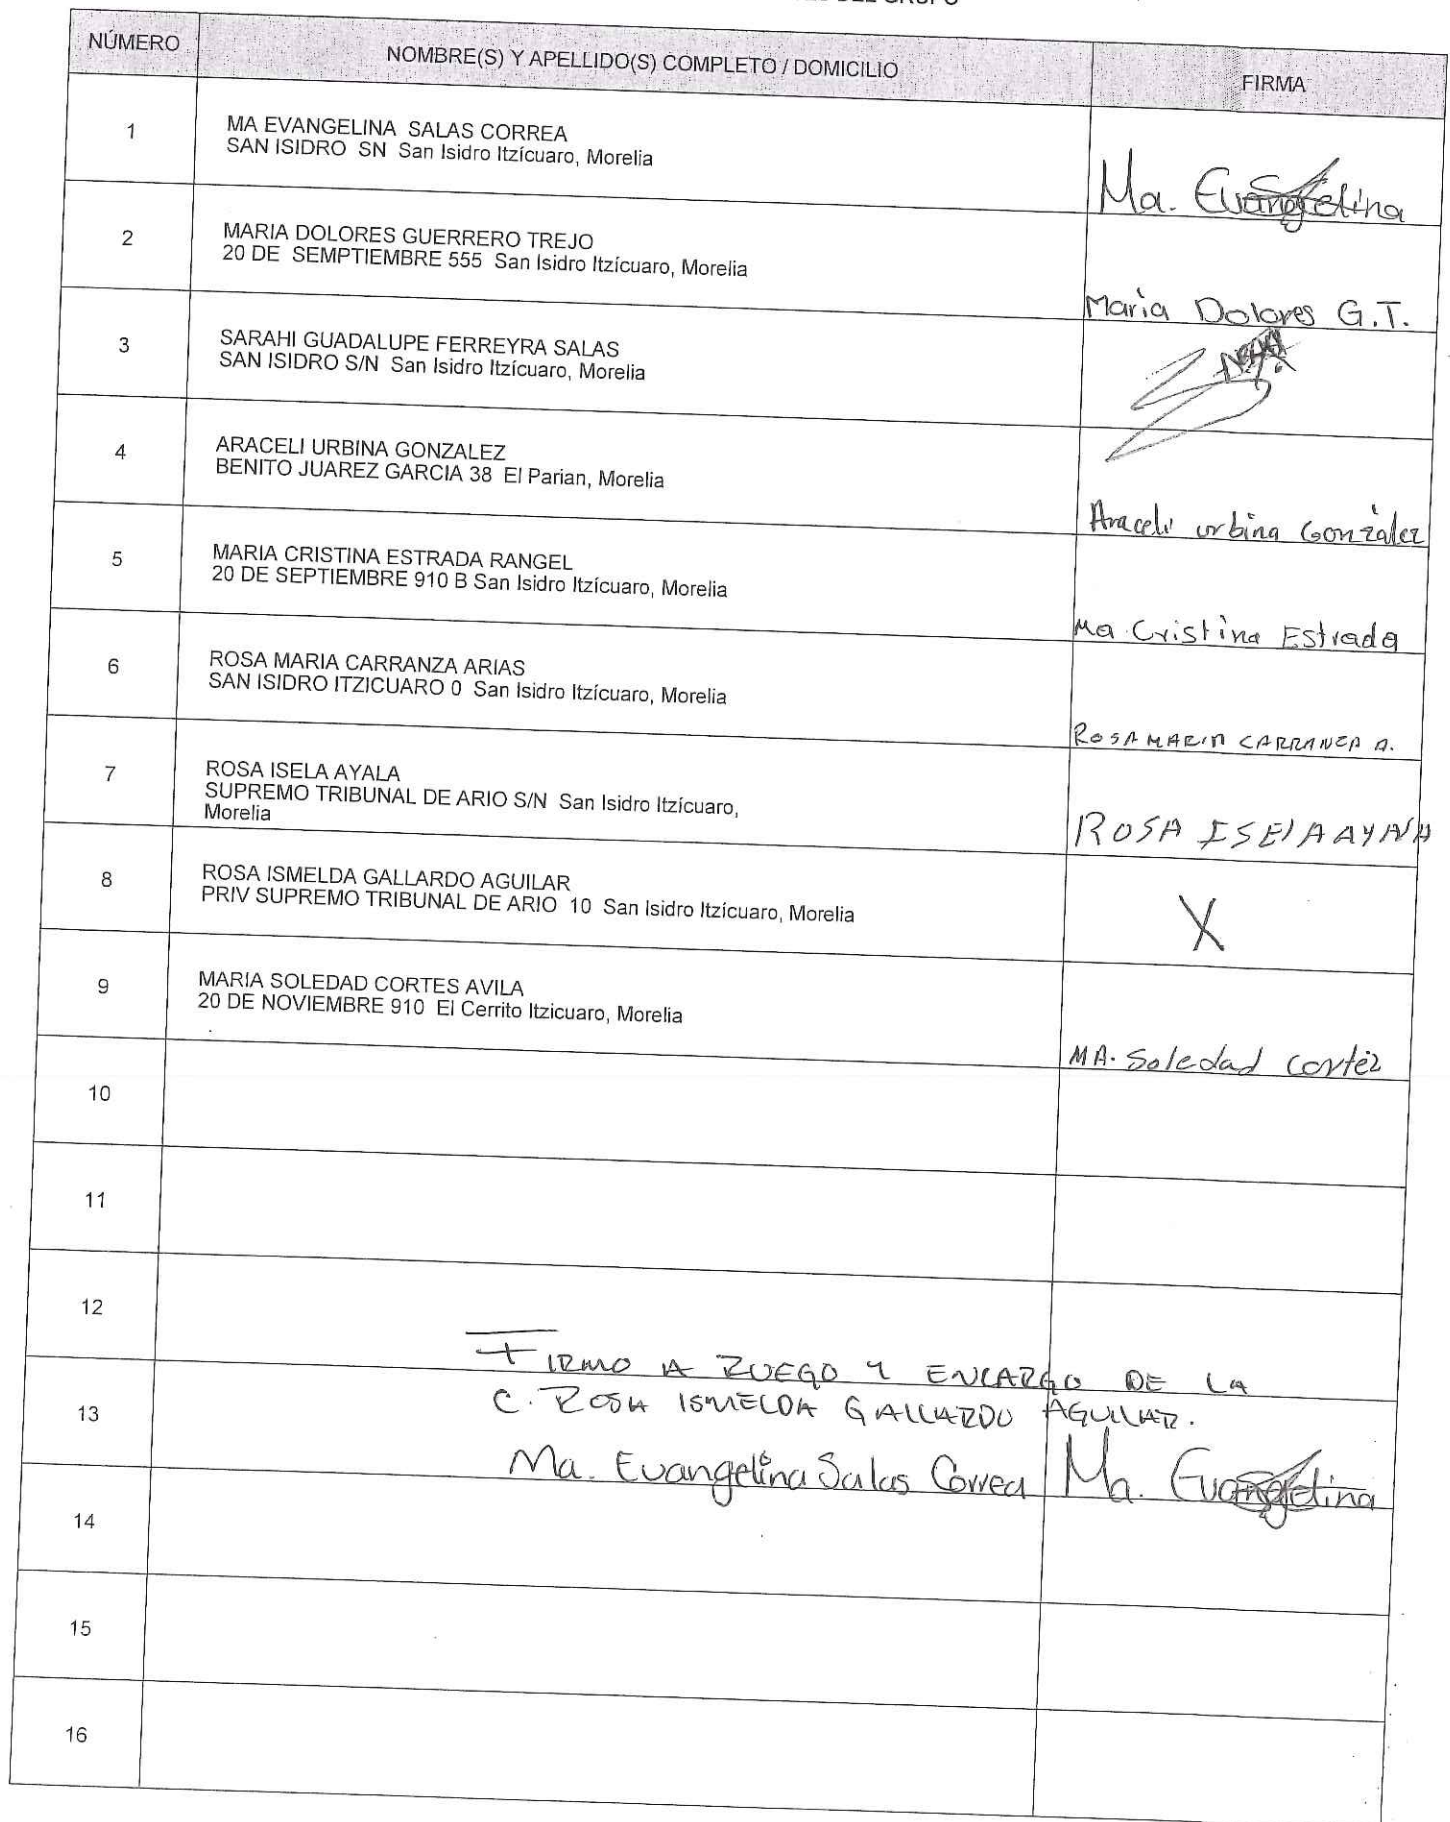 DEL GRUPO
NÚMERO NOMBRE(S) Y APELLIDO(S) COMPLETO / DOMICILIO FIRMA
1 MA EVANGELINA SALAS CORREA
SAN ISIDRO SN San Isidro Itzícuaro, Morelia
Ma. Evangelina
2 MARIA DOLORES GUERRERO TREJO
20 DE SEMPTIEMBRE 555 San Isidro Itzícuaro, Morelia
Maria Dolores G.T.
3 SARAHI GUADALUPE FERREYRA SALAS
SAN ISIDRO S/N San Isidro Itzícuaro, Morelia
4 ARACELI URBINA GONZALEZ
BENITO JUAREZ GARCIA 38 El Parian, Morelia
Araceli urbina González
5 MARIA CRISTINA ESTRADA RANGEL
20 DE SEPTIEMBRE 910 B San Isidro Itzícuaro, Morelia
Ma Cristina Estrada
6 ROSA MARIA CARRANZA ARIAS
SAN ISIDRO ITZICUARO 0 San Isidro Itzícuaro, Morelia
ROSA MARIA CARRANZA A.
7 ROSA ISELA AYALA
SUPREMO TRIBUNAL DE ARIO S/N San Isidro Itzícuaro,
Morelia
ROSA ISElA AYAlA
8 ROSA ISMELDA GALLARDO AGUILAR
PRIV SUPREMO TRIBUNAL DE ARIO 10 San Isidro Itzícuaro, Morelia
X
9 MARIA SOLEDAD CORTES AVILA
20 DE NOVIEMBRE 910 El Cerrito Itzicuaro, Morelia
MA. Soledad Cortéz
10
11
12
FIRMO A RUEGO Y ENCARGO DE LA
13 C. ROSA ISMELDA GALLARDO AGUILAR.
Ma. Evangelina Salas Correa Ma. Evangelina
14
15
16